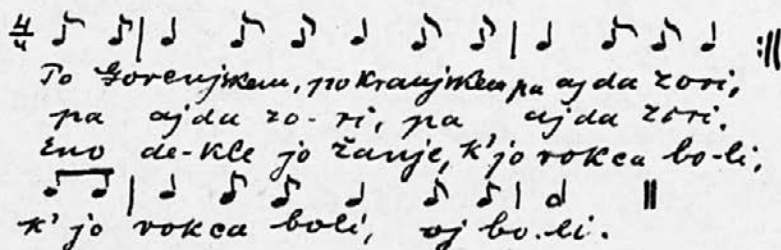 4/4
Po Gorenjskem, po Kranjskem pa ajda zori,
pa ajda zo-ri, pa ajda zori.
Eno de-kle jo žanje, k'jo rokca bo-li,
k' jo rokca boli, oj bo-li.